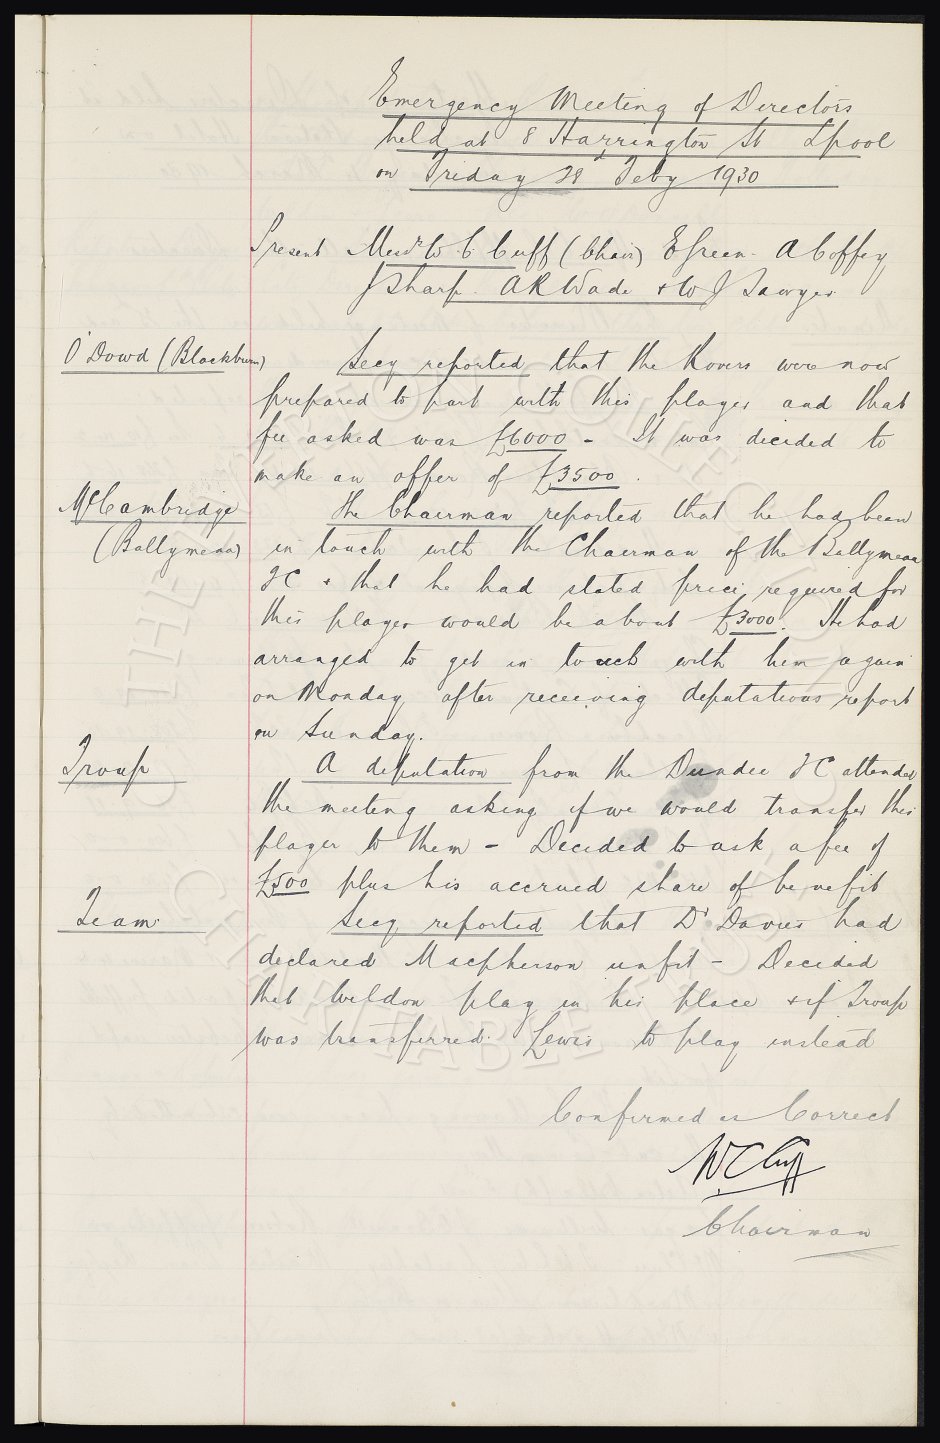 Emergency Meeting of Directors
held at 8 Harrington St Lpool
on Friday 28 Feby 1930
Present Messrs W. C. Cuff (Chair) E Green. A Coffey
J Sharp. A R Wade & W J Sawyer
O'Dowd (Blackburn) Secy reported that the Rovers were now
prepared to part with this player and that
fee asked was £6000 - It was decided to
make an offer of £3500.
McCambridge The Chairman reported that he had been
(Ballymena) in touch with the Chairman of the Ballymena
FC & that he had stated price required for
this player would be about £3000. He had
arranged to get in touch with him again
on Monday after receiving deputations report
on Sunday.
Troup A deputation from the Dundee FC attended
the meeting asking if we would transfer this
player to them - Decided to ask a fee of
£500 plus his accrued share of benefit
Team Secy reported that Dr Davies had
declared Macpherson unfit - Decided
that Weldon play in his place & if Troup
was transferred. Lewis to play instead
Confirmed as Correct
W C Cuff
Chairman
THE EVERTON COLLECTION
CHARITABLE TRUST